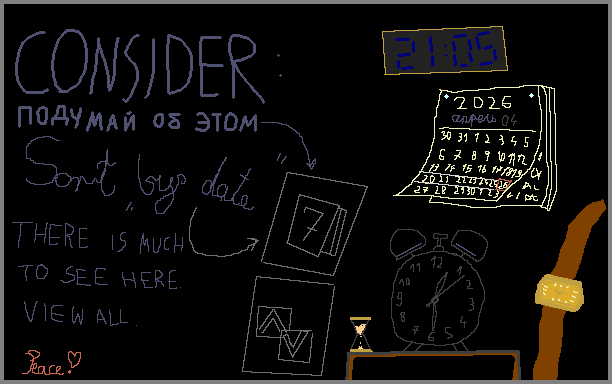 CONSIDER:
ПОДУМАЙ ОБ ЭТОМ
"Sort by date"
THERE IS MUCH
TO SEE HERE.
VIEW ALL.
Peace!
7
21:05
2026
апрель 04
30 31 1 2 3 4 5
6 7 8 9 10 11 12
13 14 15 16 17 18 19
20 21 22 23 24 25 26
27 28 29 30 1 2
12 1 2 3 4 5 6 7 8 9 10 11